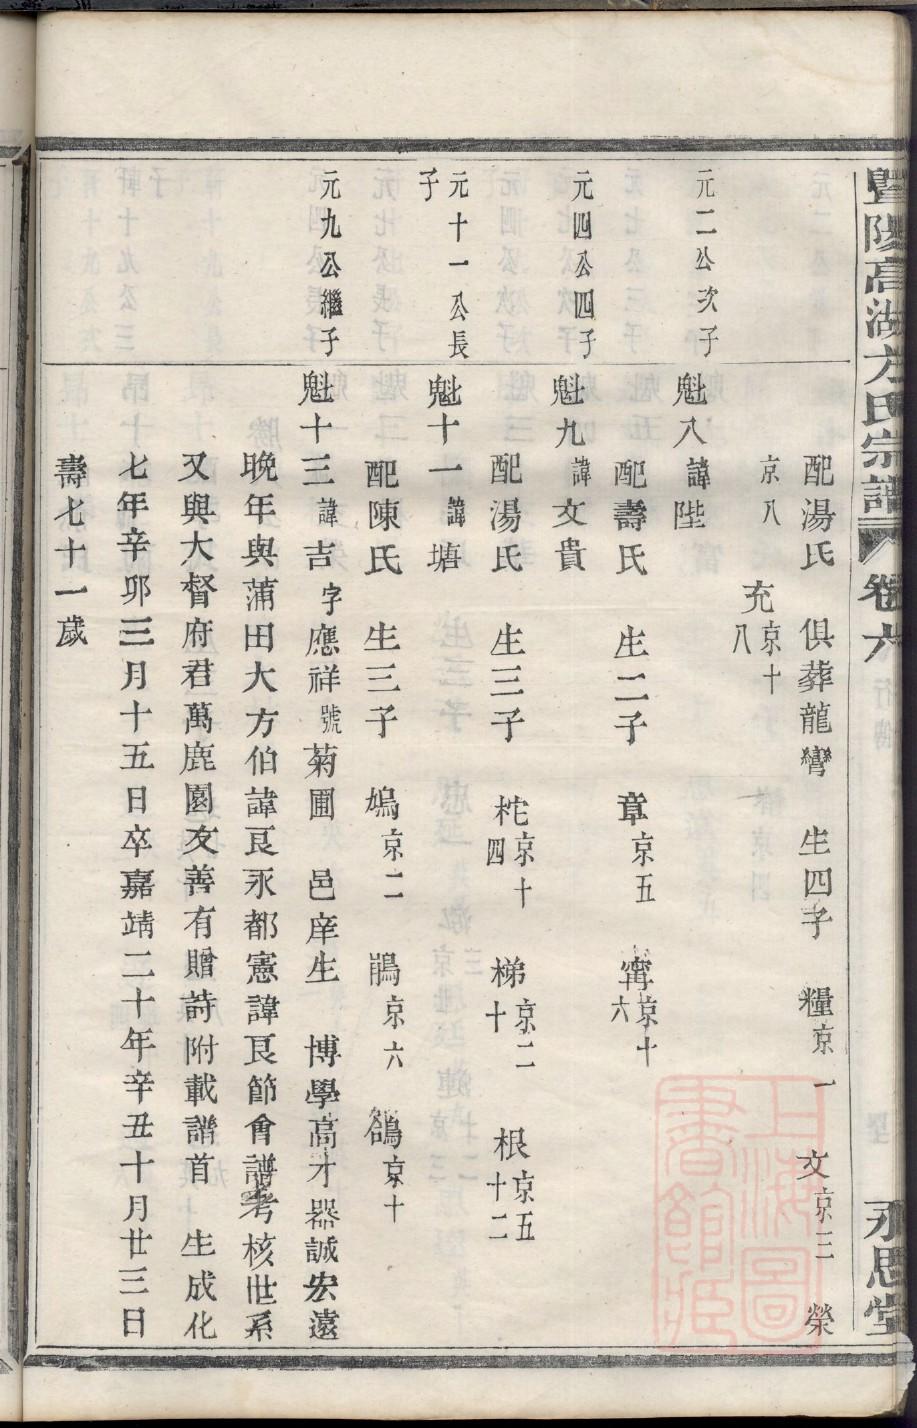 暨陽高湖方氏宗譜 卷六 永思堂
配湯氏 俱葬龍灣 生四子 糧京一 文京三 榮
京八 充京十八
元二公次子 魁八諱陛
配壽氏 生二子 章京五 寗京十六
元四公四子 魁九諱文貴
配湯氏 生三子 柁京十四 梯京二十 根京五十二
元十一公長子 魁十一諱塘
配陳氏 生三子 鳩京二 鵑京六 鵒京十
元九公繼子 魁十三諱吉字應祥號菊圃 邑庠生 博學高才器誠宏遠
晚年與蒲田大方伯諱良永都憲諱良節會譜考核世系
又與大督府君萬鹿園友善有贈詩附載譜首 生成化
七年辛卯三月十五日卒嘉靖二十年辛丑十月廿三日
壽七十一歲
上海圖書館藏